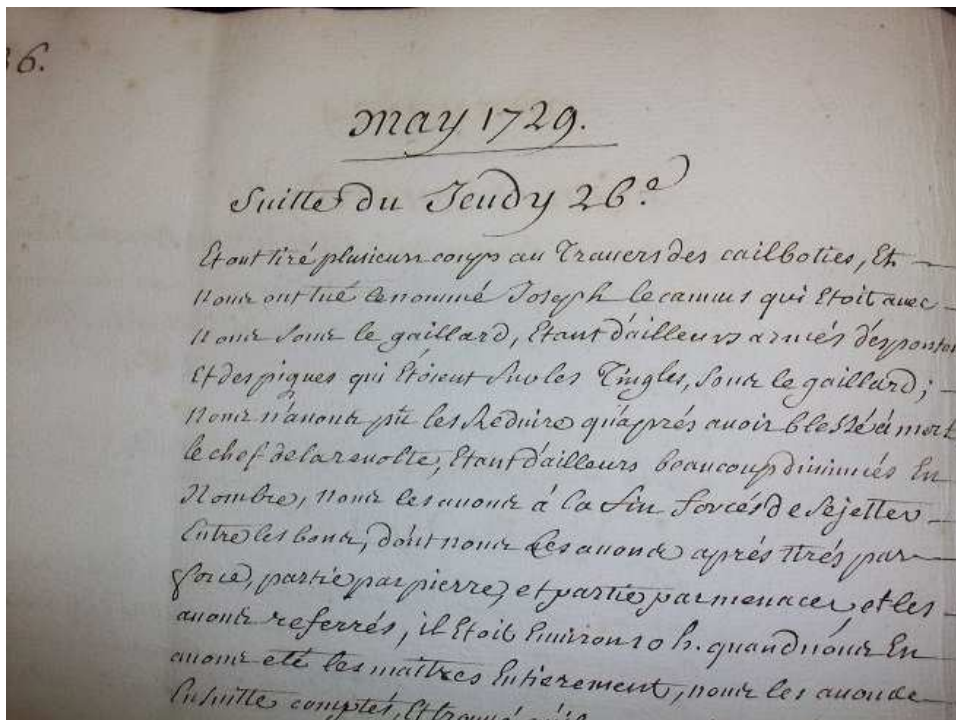 36.
may 1729.
Suitte du Jeudy 26.e
Et ont tiré plusieurs coups au Travers des cailboties, Et
Nous ont tué le nommé Joseph le camus qui Etoit avec
Nous sous le gaillard, Etant d'ailleurs armés d'esponton
Et des piques qui Etoient sur les Tingles, sous le gaillard;
Nous n'avons pû les Reduire qu'aprés avoir blessé à mort
le chef de la revolte, Etant d'ailleurs beaucoup diminués En
Nombre, nous les avons à la fin forcés de se jetter
Entre les bons, dont nous Les avons aprés tirés par
force, partie par pierre, et partie par menaces, et les
avons referrés, il Etoit Environ 10 h. quand nous En
avons eté les maitres Entierement, nous les avons de
Ensuitte comptés, Et trouvé